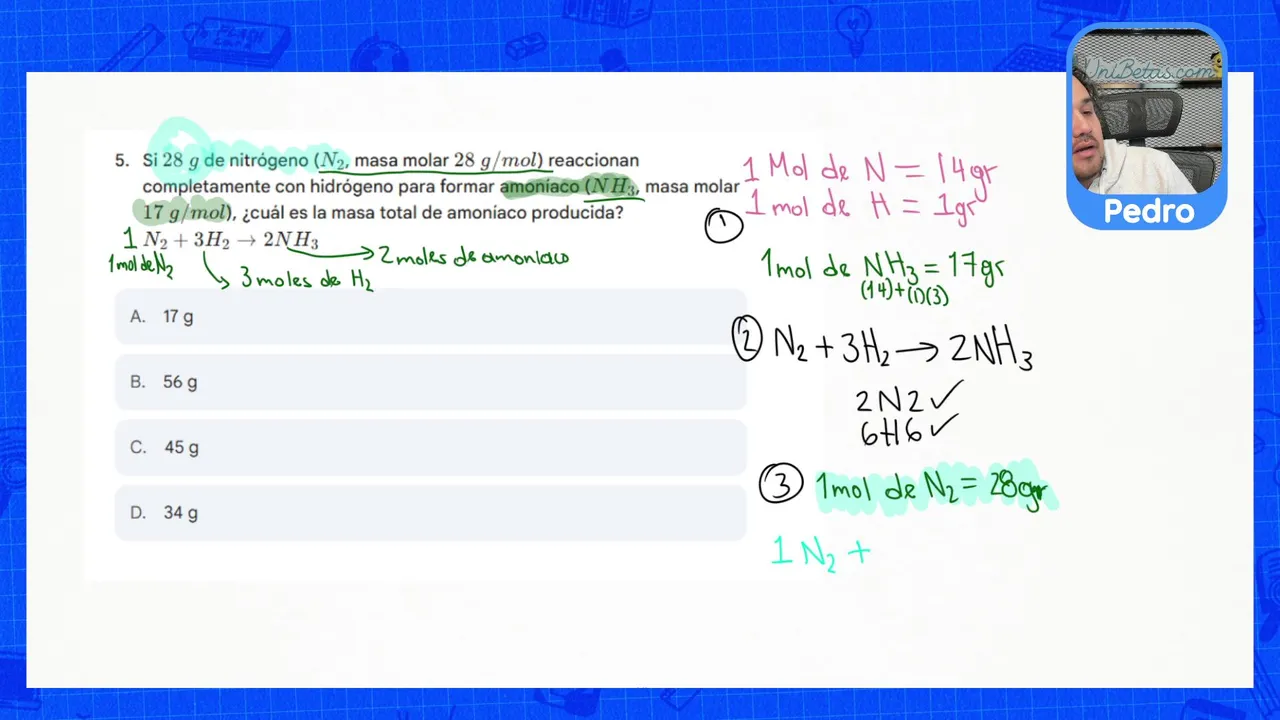 UniBetas.com
Pedro
5. Si 28 g de nitrógeno (N₂, masa molar 28 g/mol) reaccionan
completamente con hidrógeno para formar amoníaco (NH₃, masa molar
17 g/mol), ¿cuál es la masa total de amoníaco producida?
1 N₂ + 3H₂ → 2NH₃
1mol de N₂
3 moles de H₂
2 moles de amoniaco
A. 17 g
B. 56 g
C. 45 g
D. 34 g
1 Mol de N = 14gr
1 mol de H = 1gr
1
1mol de NH₃ = 17gr
(14)+(1)(3)
2 N₂ + 3H₂ → 2NH₃
2N2 ✓
6H6 ✓
3 1mol de N₂ = 28gr
1 N₂ +